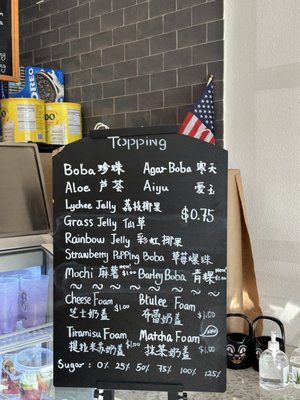 OREO
Topping
Boba 珍珠 Agar Boba 寒天
Aloe 芦荟 Aiyu 爱玉
Lychee Jelly 荔枝椰果
$0.75
Grass Jelly 仙草
Rainbow Jelly 彩虹椰果
Strawberry Popping Boba 草莓爆珠
Mochi 麻薯 $1.00 Barley Boba 青稞
Cheese Foam $1.00 Brulee Foam
芝士奶盖 乔蕾奶盖 $1.00
Tiramisu Foam Matcha Foam
提拉米苏奶盖 $1.00 抹茶奶盖 $1.00
Sugar: 0% 25% 50% 75% 100% 125%